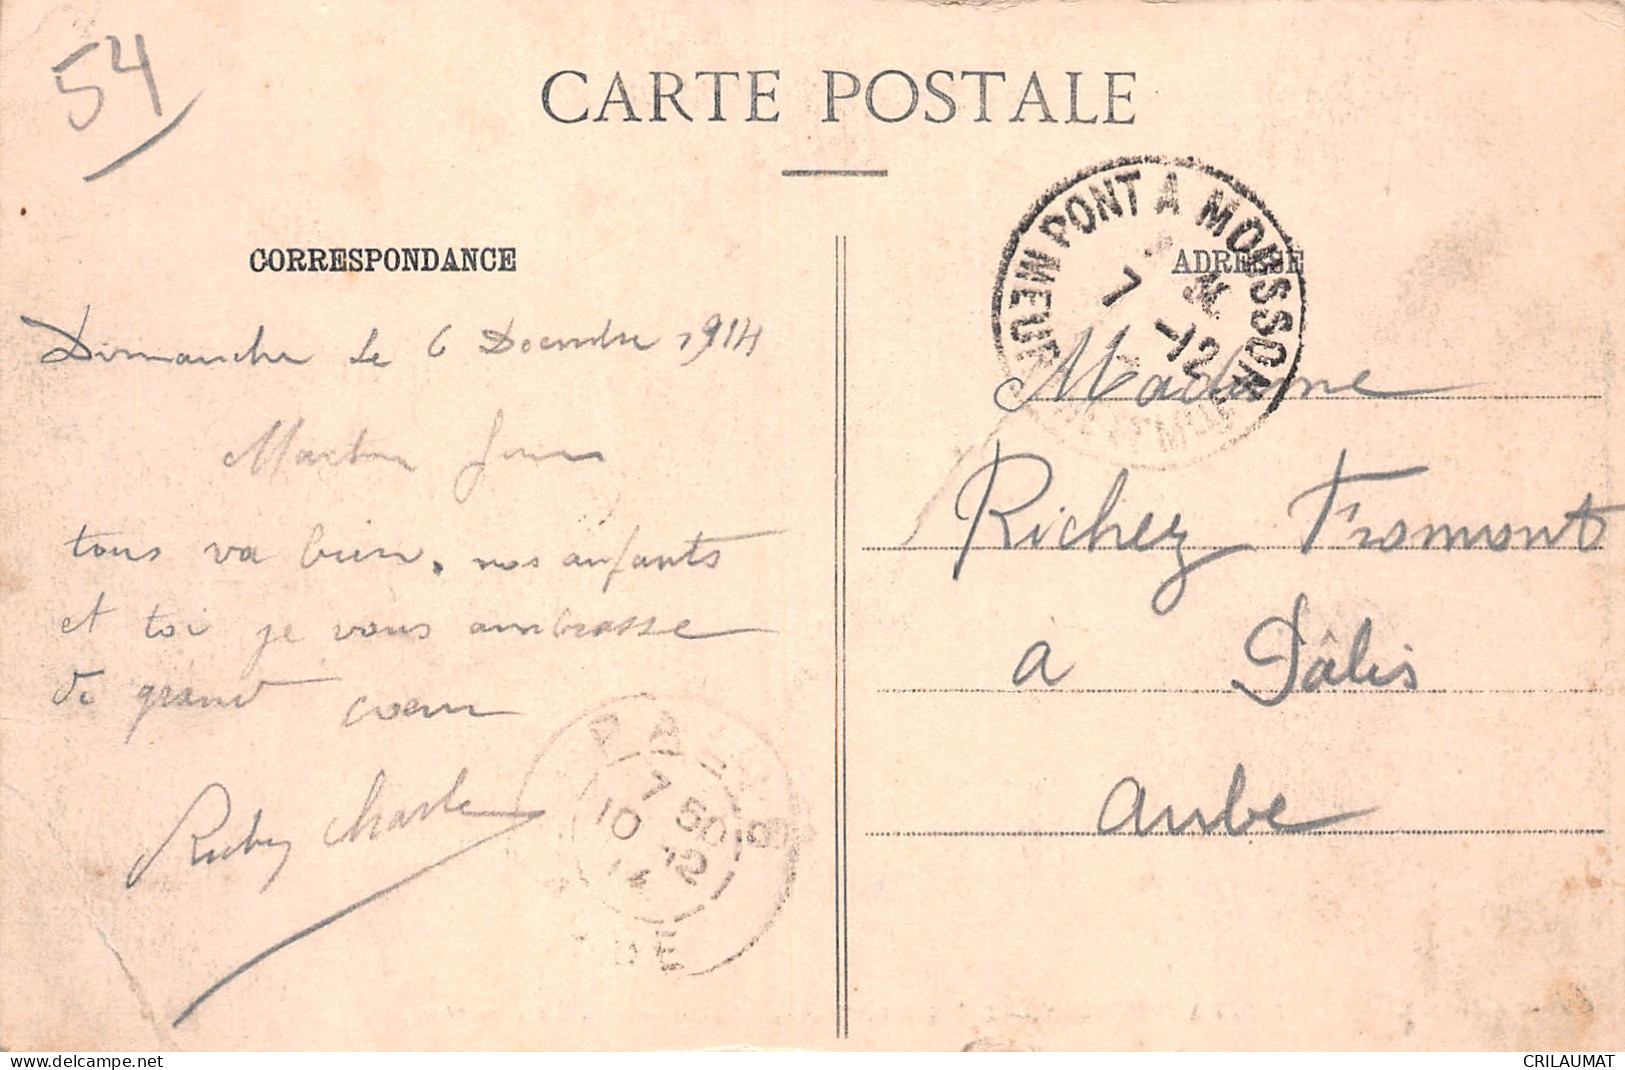 54
CARTE POSTALE
CORRESPONDANCE
ADRESSE
PONT A MOUSSON
MEURTHE
7 -12
Dimanche le 6 Decembre 1914
tous va bien. nos anfants
et toi je vous ambrasse
de grand coeur
Richez Charle
Madame
Richez Fromont
à Pâlis
Aube
7 50
10 12
14
delcampe.net
CRILAUMAT